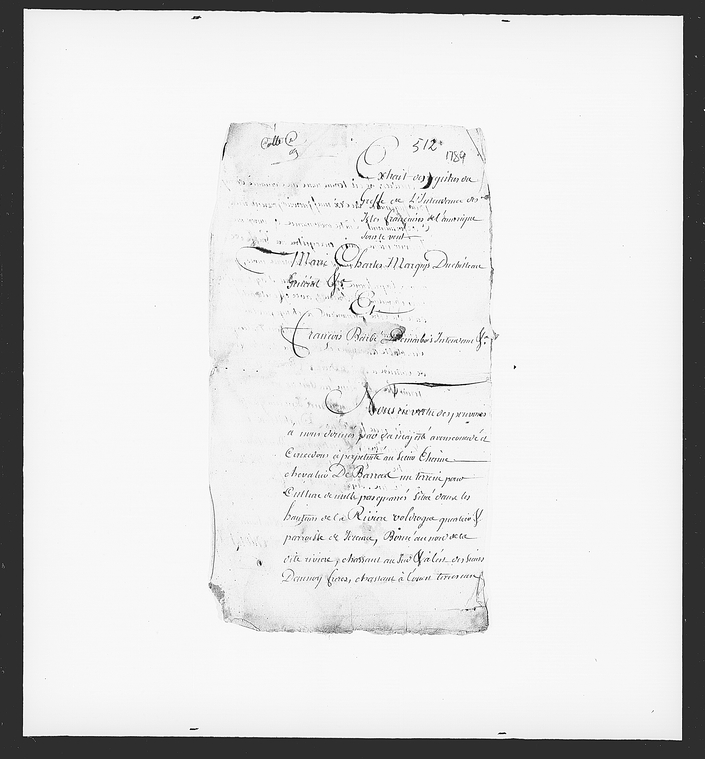 512
1789
Extrait des registres du
Greffe de L'Intendance des
Isles françaises de l'amerique
sous le vent
Marie Charles Marquis Duchilleau
Général &a
Et
François Barbé Demarbois Intendant &a
Nous en vertu des pouvoirs
à nous donnés par sa majesté avons concédé et
Concedons à perpétuité au Sieur Etienne
chevalier De Barras un terrein pour
Culture de mille pas quarrés Situé dans les
hauteurs de la Riviere voldrogue quartier &
paroisse de Jeremie, Borné au nord de la
dite riviere, chassant au Sud & à l'est des sieurs
freres, chassant à l'ouest terrein